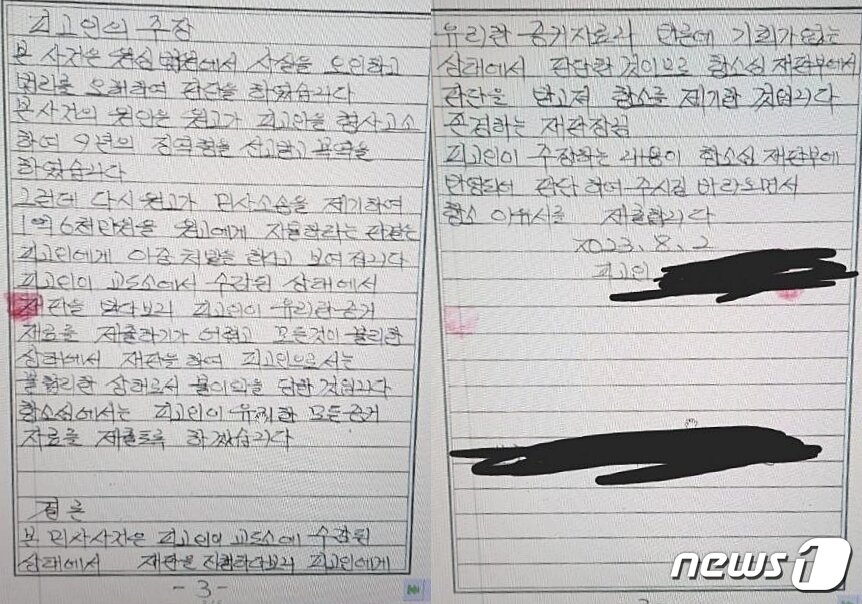 피고인의 주장
본 사건은 원심 법원에서 사실을 오인하고
법리를 오해하여 판단을 하였습니다
본사건의 원인은 원고가 피고인을 형사고소
하여 9년의 징역형을 선고받고 복역을
하였습니다
그런데 다시 원고가 민사소송을 제기하여
1억 6천만원을 원고에게 지불하라는 판결은
피고인에게 이중 처벌을 한다고 보여집니다
피고인이 교도소에서 수감된 상태에서
재판을 받다보니 피고인이 유리한 증거
재료를 제출하기가 어렵고 모든것이 불리한
상태에서 재판을 하여 피고인으로서는
불합리한 상태로서 불이익을 당한 것입니다
항소심에서는 피고인이 유리한 모든 증거
자료를 제출토록 하겠습니다
결론
본 민사사건은 피고인이 교도소에 수감된
상태에서 재판을 진행하다보니 피고인에게
- 3 -
유리한 증거자료나 변론에 기회가 없는
상태에서 판단한 것이므로 항소심 재판부에서
판단을 받고저 항소를 제기한 것입니다
존경하는 재판장님
피고인이 주장하는 내용이 항소심 재판부에
반영되어 판단하여 주시길 바라오면서
항소 이유서를 제출합니다
2023. 8. 2
피고인
news1